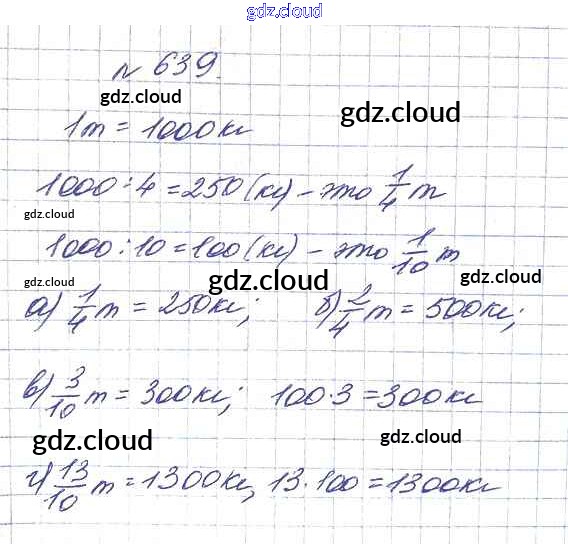 gdz.cloud
№ 639.
gdz.cloud
gdz.cloud
1т = 1000кг
1000:4 = 250 (кг) – это 1/4 т
gdz.cloud
1000:10 = 100 (кг) – это 1/10 т
gdz.cloud
gdz.cloud
gdz.cloud
а) 1/4 т = 250кг; б) 2/4 т = 500кг;
в) 3/10 т = 300кг; 100·3 = 300кг
gdz.cloud
gdz.cloud
г) 13/10 т = 1300кг, 13·100 = 1300кг